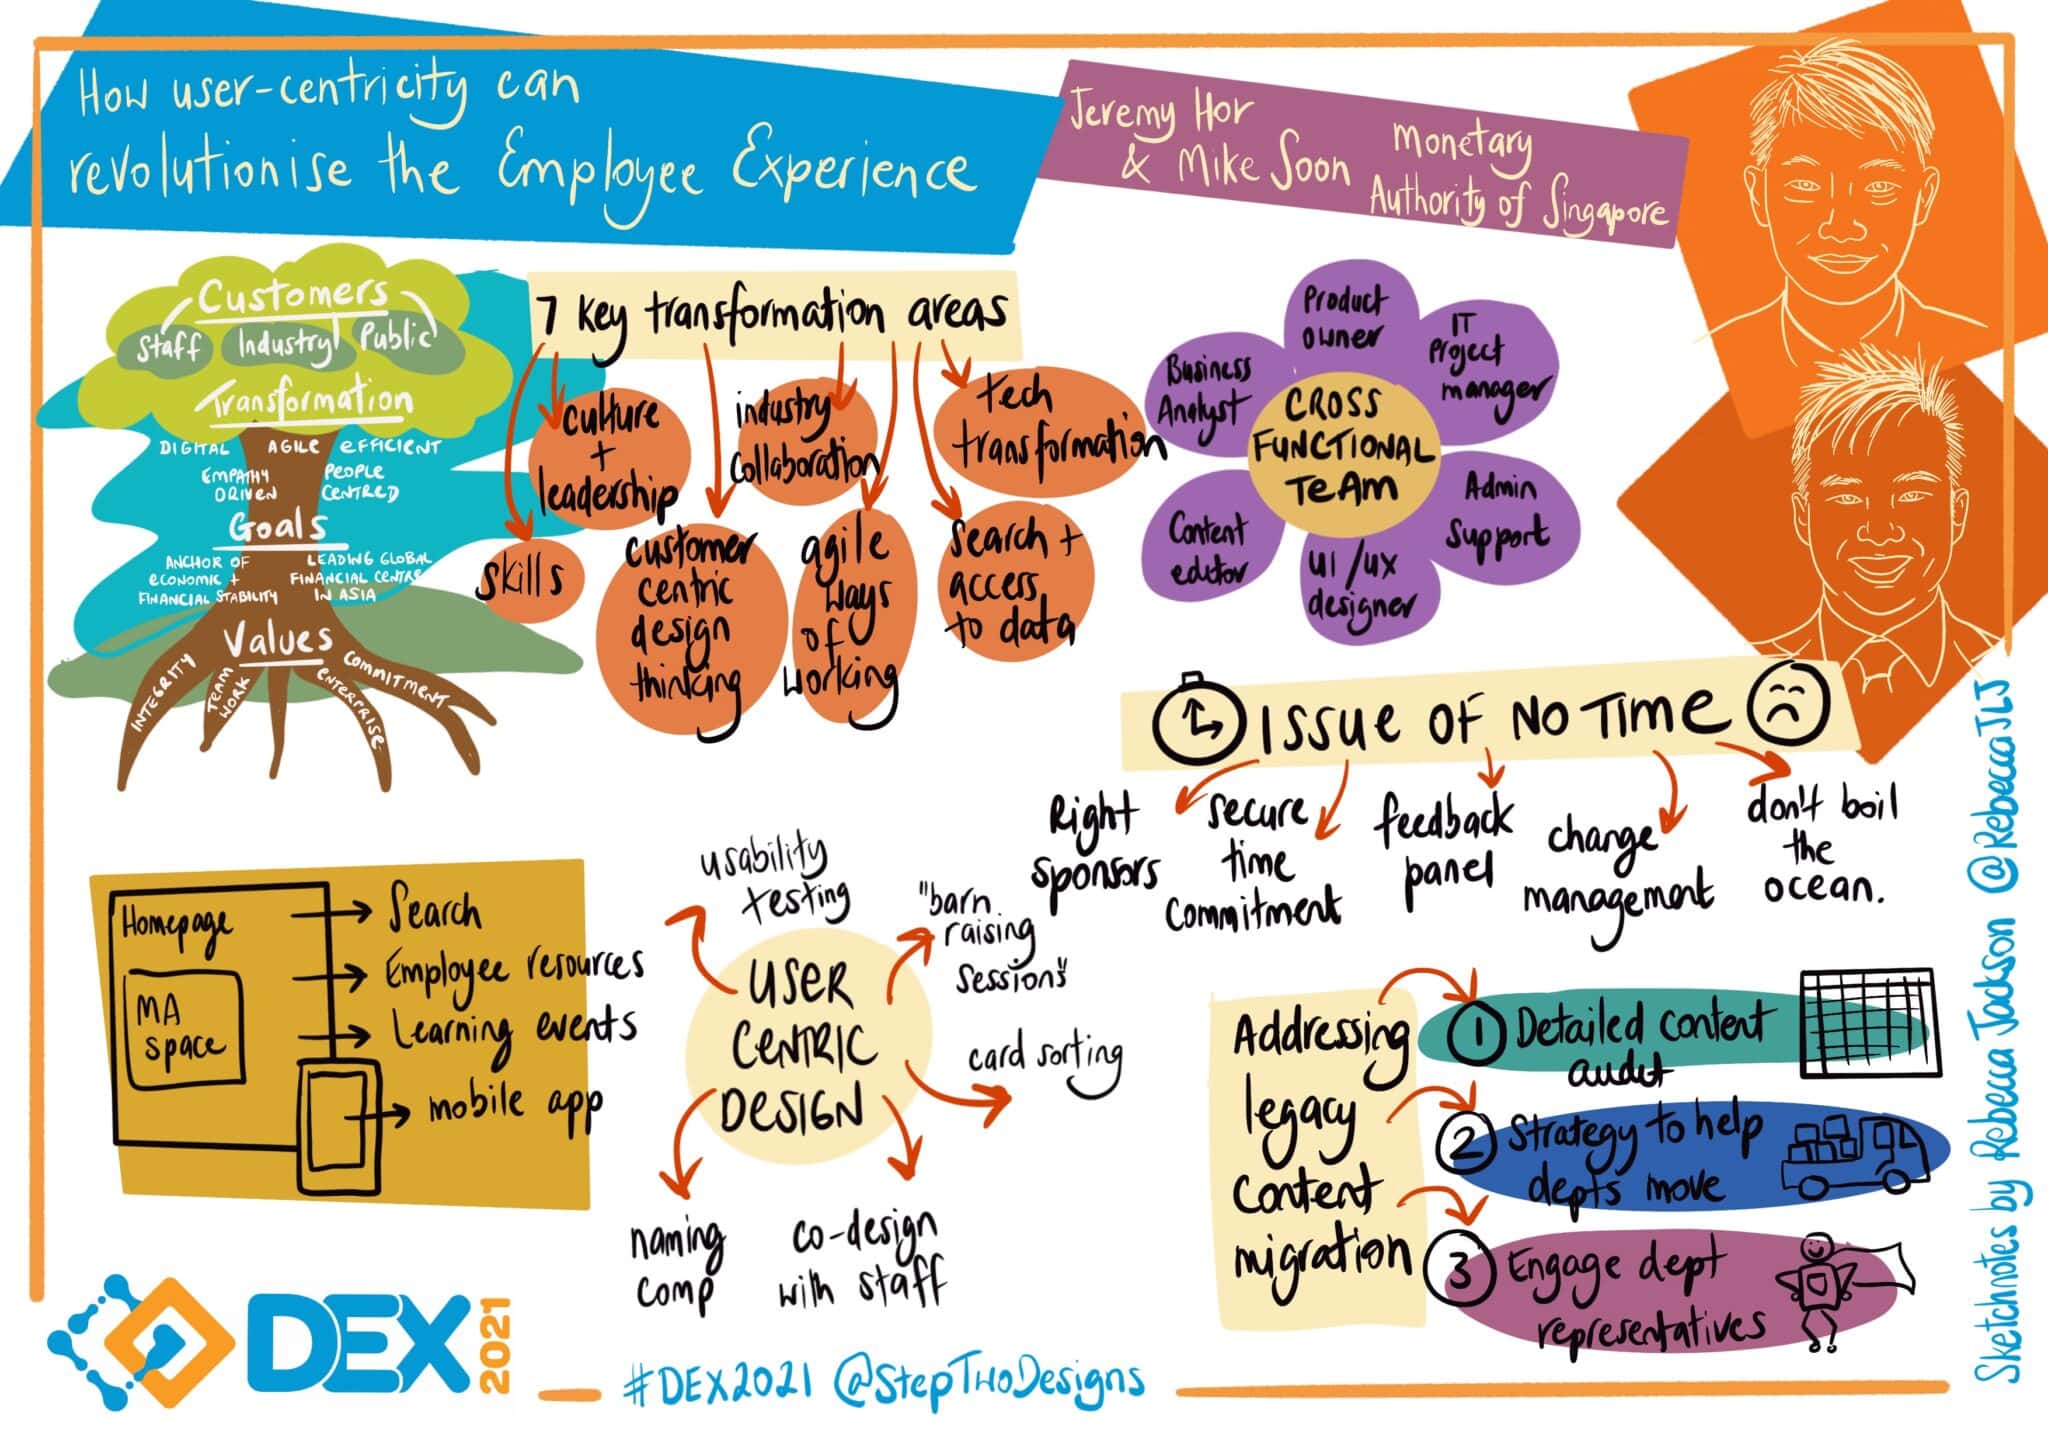 How user-centricity can
revolutionise the Employee Experience
Jeremy Hor
& Mike Soon
Monetary
Authority of Singapore
Customers
Staff
Industry
Public
Transformation
DIGITAL AGILE EFFICIENT
EMPATHY
DRIVEN
PEOPLE
CENTRED
Goals
ANCHOR OF
ECONOMIC +
FINANCIAL STABILITY
LEADING GLOBAL
FINANCIAL CENTRE
IN ASIA
Values
INTEGRITY
TEAM
WORK
ENTERPRISE
COMMITMENT
7 key transformation areas
skills
culture
+
leadership
customer
centric
design
thinking
industry
collaboration
agile
ways
of
working
search +
access
to data
tech
transformation
CROSS
FUNCTIONAL
TEAM
Product
owner
IT
Project
manager
Admin
Support
UI/UX
designer
Content
editor
Business
Analyst
ISSUE OF NO TIME
Right
sponsors
secure
time
commitment
feedback
panel
change
management
don't boil
the
ocean.
Homepage
MA
space
Search
Employee resources
Learning events
mobile app
USER
CENTRIC
DESIGN
usability
testing
"barn
raising
sessions"
card sorting
co-design
with staff
naming
comp
Addressing
legacy
content
migration
1 Detailed content
audit
2 Strategy to help
depts move
3 Engage dept
representatives
DEX
2021
#DEX2021 @StepTwoDesigns
Sketchnotes by Rebecca Jackson @RebeccaJLJ